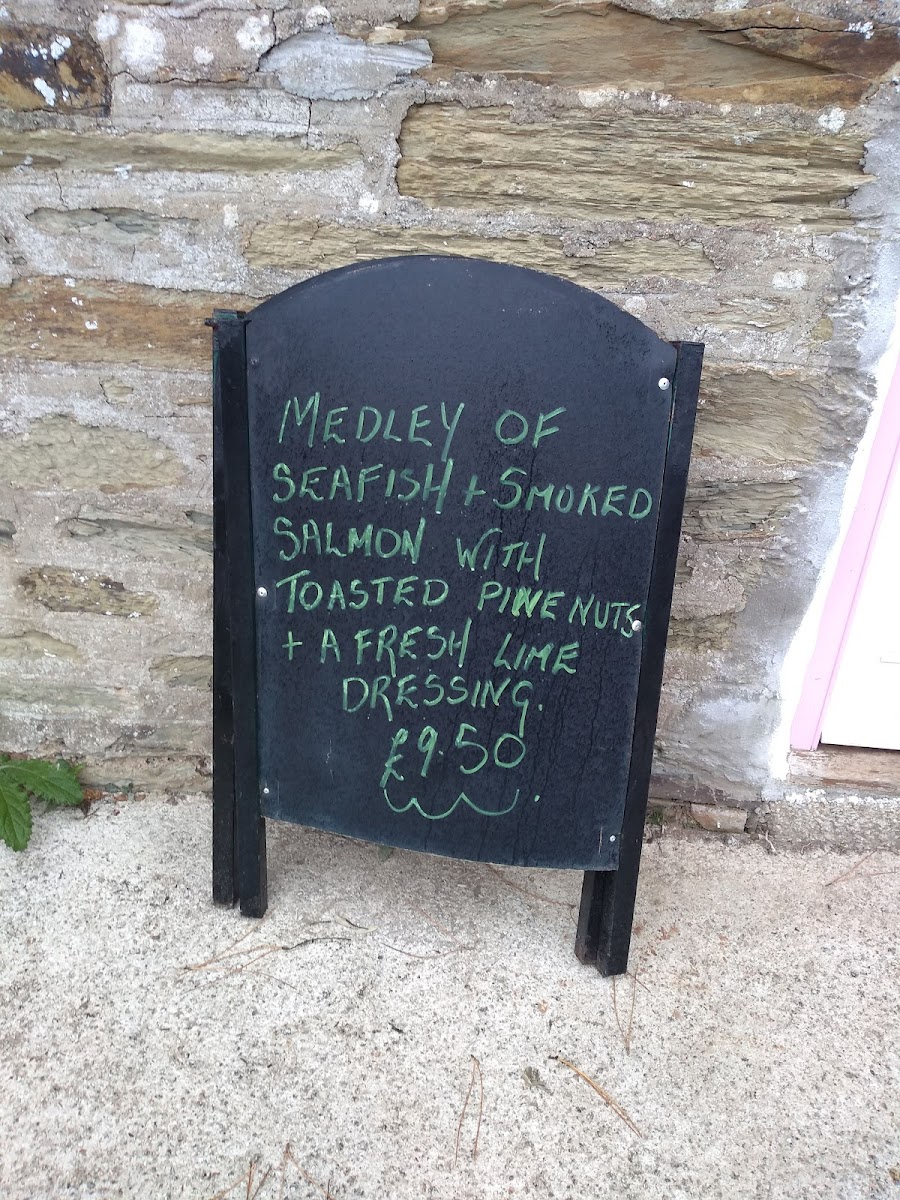 MEDLEY OF
SEAFISH + SMOKED
SALMON WITH
TOASTED PINE NUTS
+ A FRESH LIME
DRESSING.
£9.50